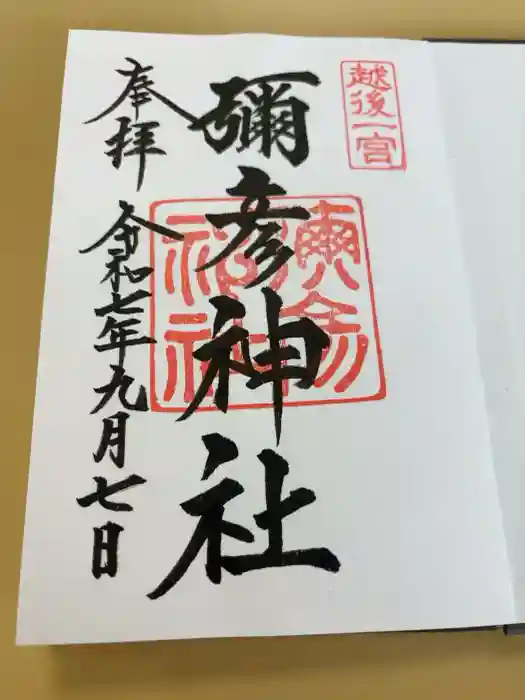 越後一宮
彌彦神社
奉拝
令和七年九月七日